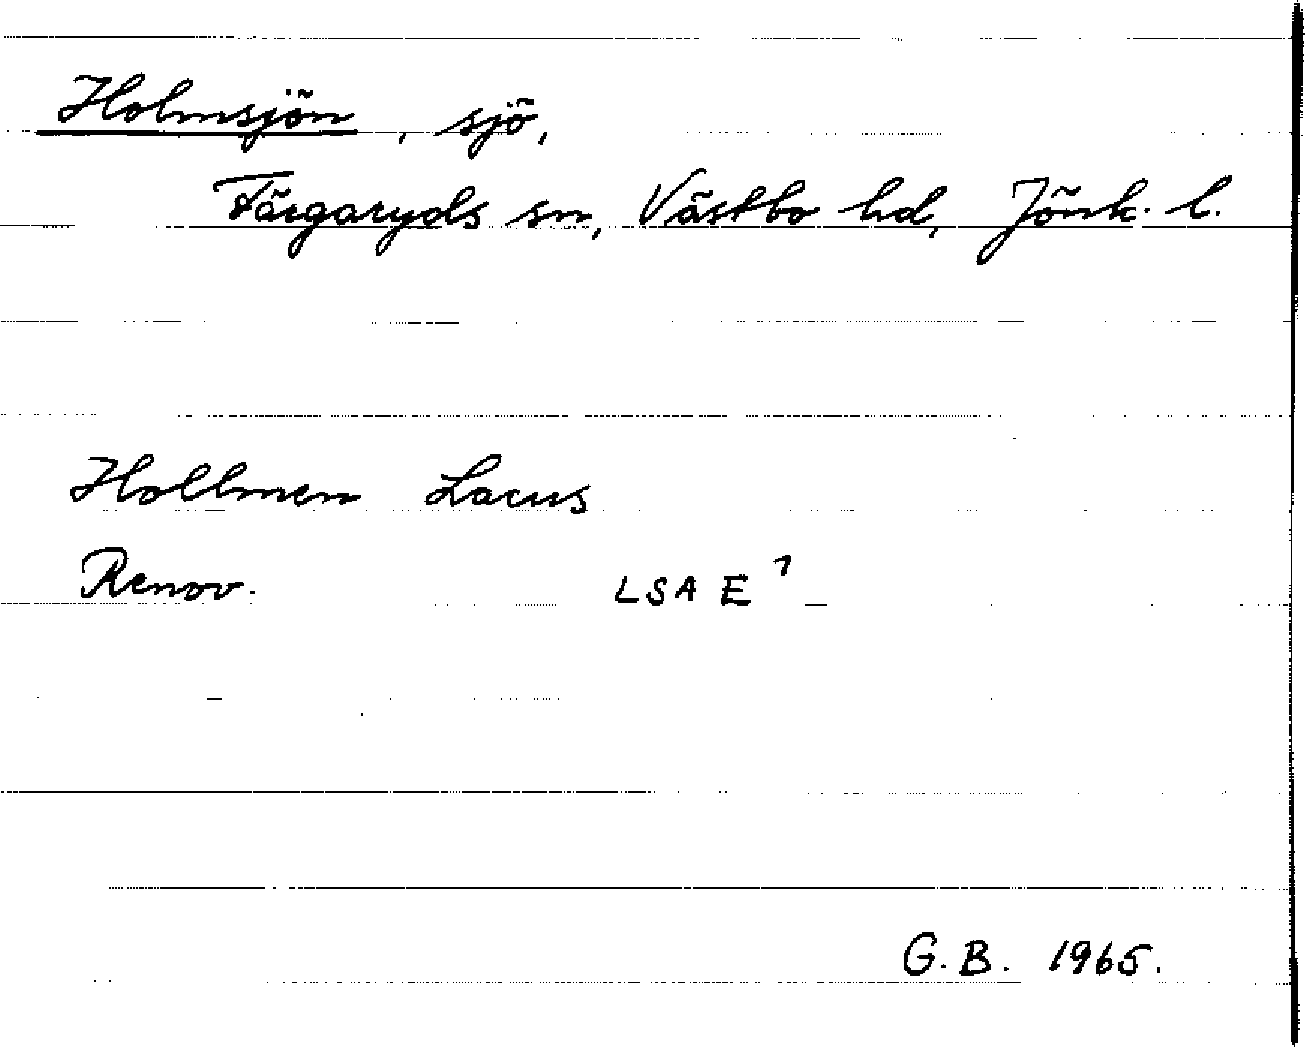 Holmsjön, sjö,
Färgaryds sn, Västbo hd, Jönk. l.
Hollmen Lacus
Renov. LSA E⁷
G.B. 1965.